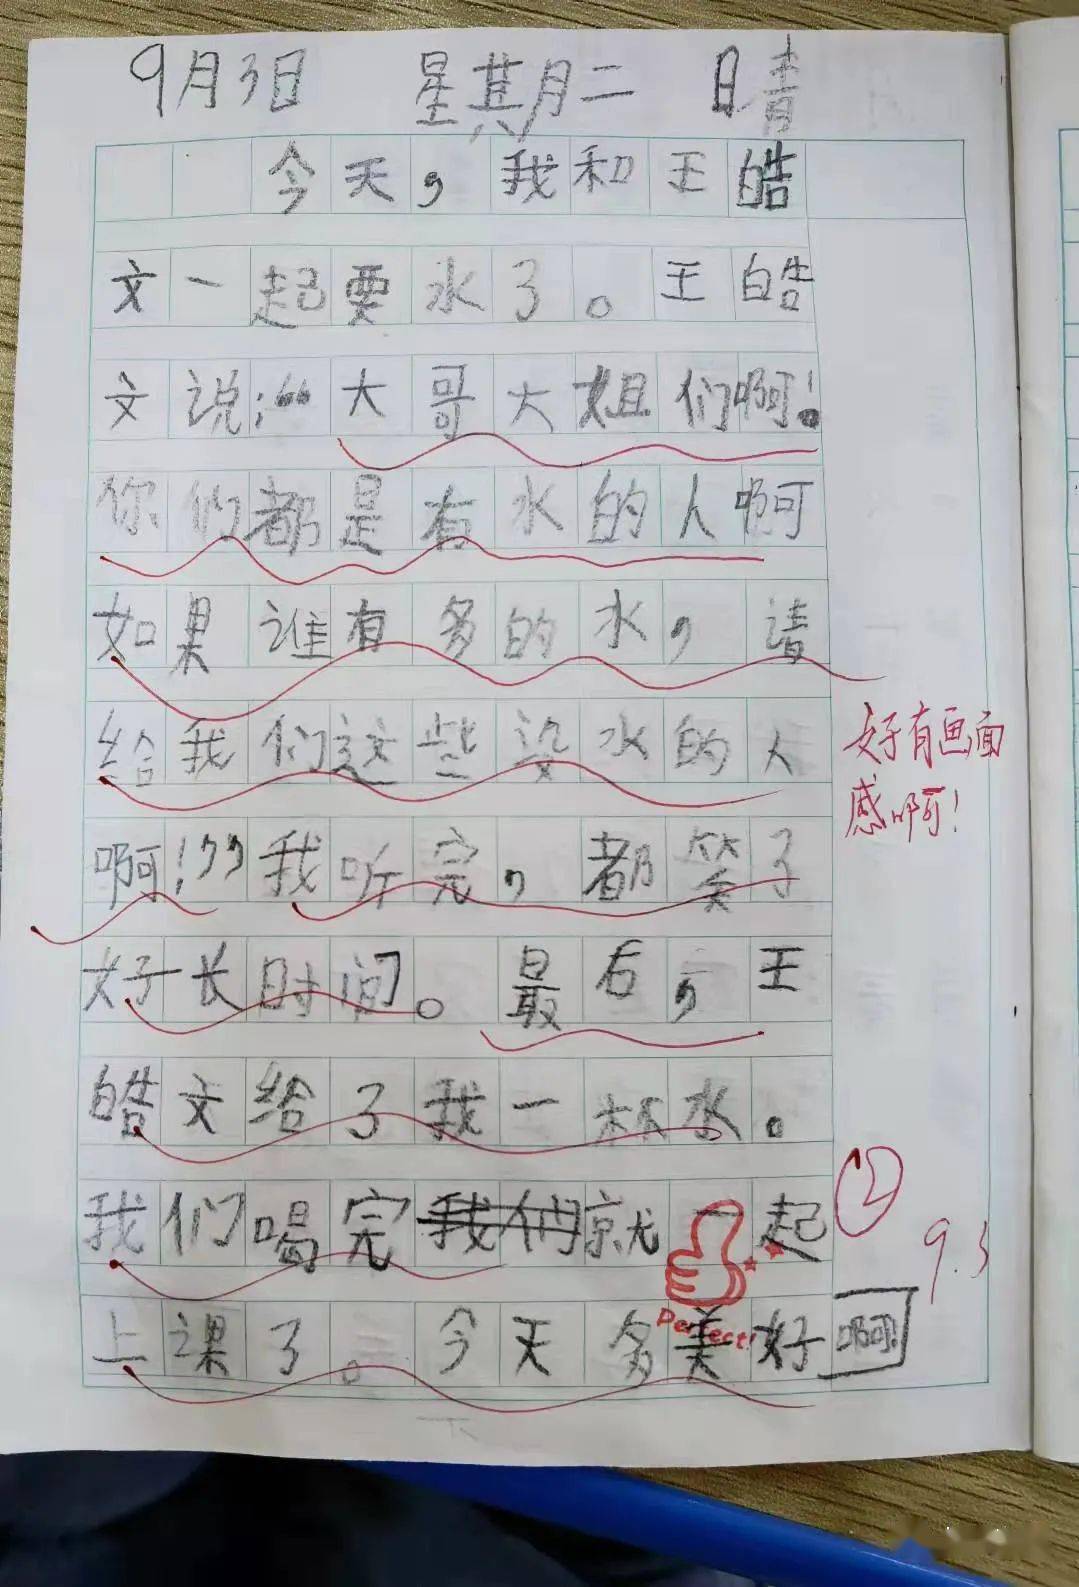 9月3日 星其月二 日晴
今天，我和王皓
文一起要水了。王皓
文说：“大哥大姐们啊！
你们都是有水的人啊
如果谁有多的水，请
给我们这些没水的人
啊！”我听完，都笑了
好长时间。最后，王
皓文给了我一杯水。
我们喝完我们就一起
上课了。今天多美好啊！
好有画面
感啊！
2
9.3
Perfect!